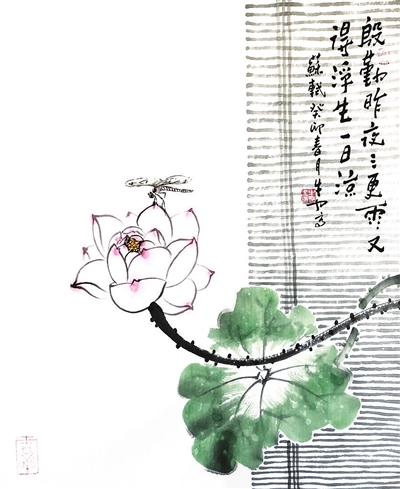 殷勤昨夜三更雨又
得浮生一日涼
蘇軾癸卯春月